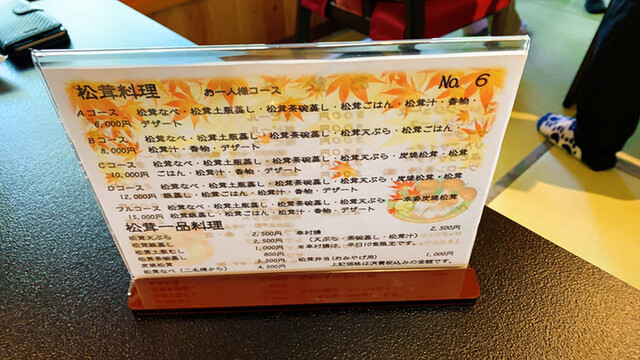 松茸料理 お一人様コース No. 6
Aコース 松茸なべ・松茸土瓶蒸し・松茸茶碗蒸し・松茸ごはん・松茸汁・香物・
6,000円 デザート
Bコース 松茸なべ・松茸土瓶蒸し・松茸茶碗蒸し・松茸天ぷら・松茸ごはん・
8,000円 松茸汁・香物・デザート
Cコース 松茸なべ・松茸土瓶蒸し・松茸茶碗蒸し・松茸天ぷら・炭焼松茸・松茸
10,000円 ごはん・松茸汁・香物・デザート
Dコース 松茸なべ・松茸土瓶蒸し・松茸茶碗蒸し・松茸天ぷら・炭焼松茸・松茸
12,000円 銀蒸し・松茸ごはん・松茸汁・香物・デザート
フルコース 松茸なべ・松茸土瓶蒸し・松茸茶碗蒸し・松茸天ぷら・一本姿炭焼松茸・
15,000円 松茸銀蒸し・松茸ごはん・松茸汁・香物・デザート
松茸一品料理
松茸天ぷら 2,500円 幸村膳 2,500円
松茸銀蒸し 2,500円 (天ぷら・茶碗蒸し・松茸汁)
松茸土瓶蒸し 1,000円 ※幸村膳は、平日10食限定です。
松茸茶碗蒸し 800円
炭焼松茸 3,500円 松茸弁当(おみやげ用) 1,000円
松茸なべ(二名様から) 4,500円 上記価格は消費税込みの金額です。